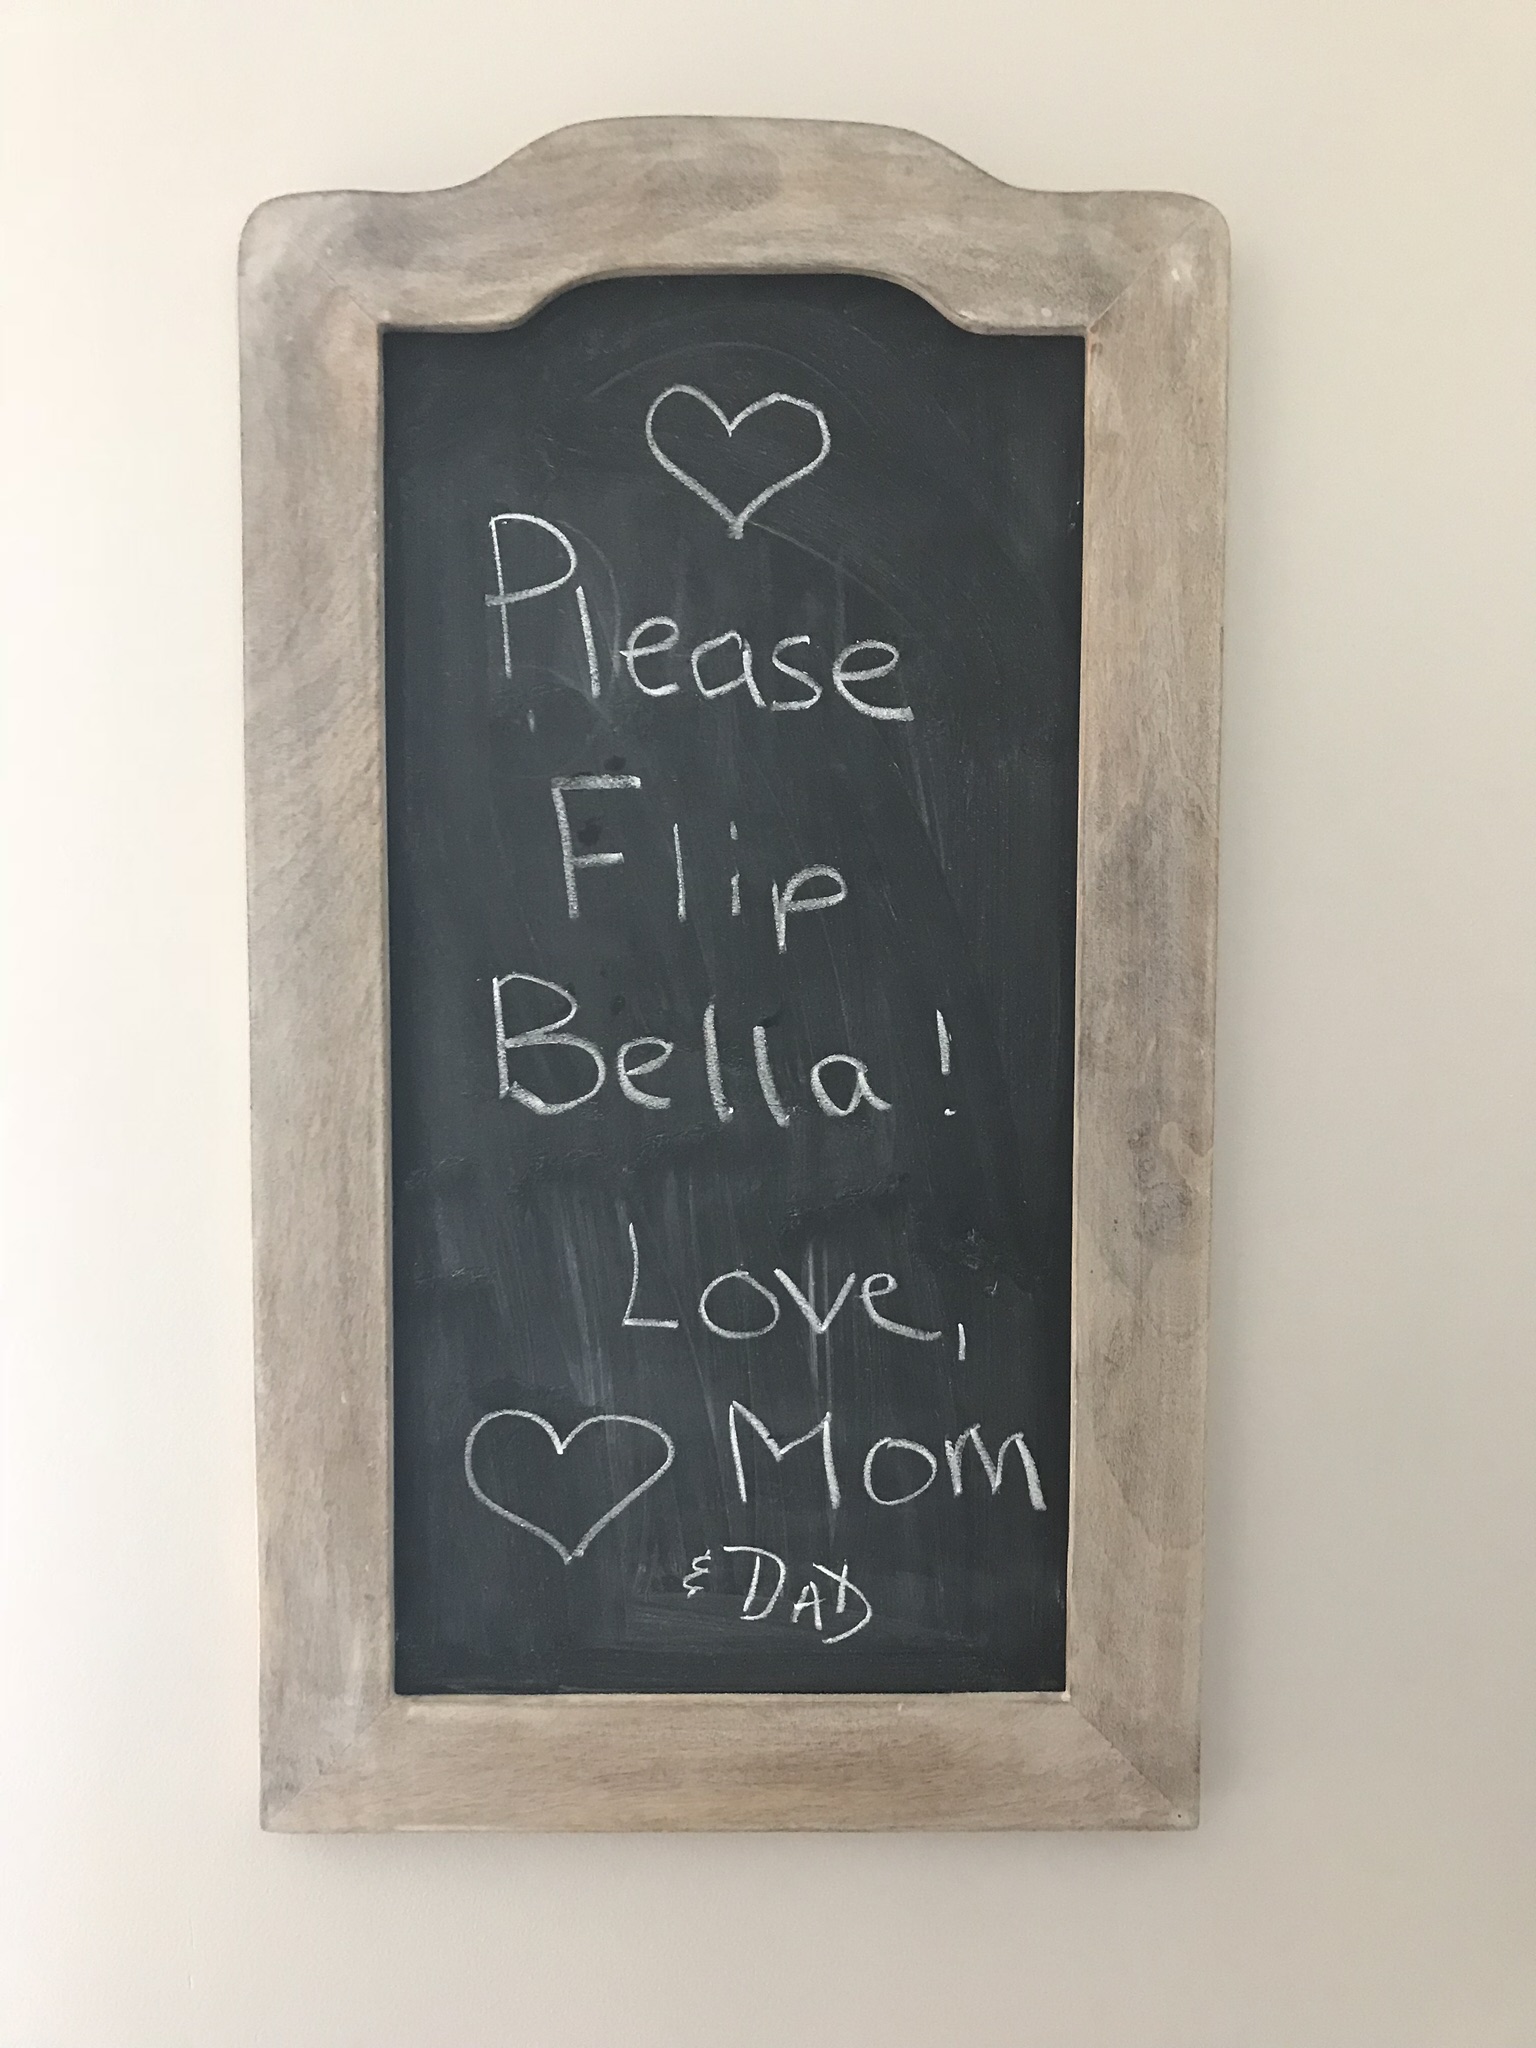 Please
Flip
Bella!
Love,
Mom
& DAD